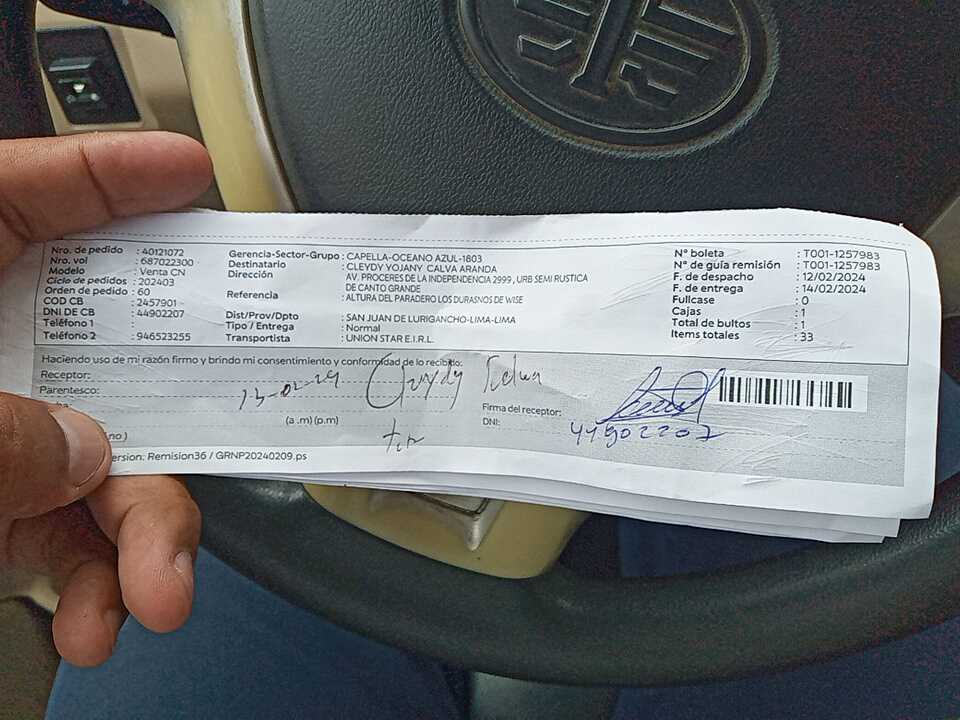 Nro. de pedido : 40121072
Nro. vol : 687022300
Modelo : Venta CN
Ciclo de pedidos : 202403
Orden de pedido : 60
COD CB : 2457901
DNI DE CB : 44902207
Teléfono 1 :
Teléfono 2 : 946523255
Gerencia-Sector-Grupo : CAPELLA-OCEANO AZUL-1803
Destinatario : CLEYDY YOJANY CALVA ARANDA
Dirección : AV. PROCERES DE LA INDEPENDENCIA 2999 , URB SEMI RUSTICA
DE CANTO GRANDE
Referencia : ALTURA DEL PARADERO LOS DURASNOS DE WISE
Dist/Prov/Dpto : SAN JUAN DE LURIGANCHO-LIMA-LIMA
Tipo / Entrega : Normal
Transportista : UNION STAR E.I.R.L.
N° boleta : T001-1257983
N° de guía remisión : T001-1257983
F. de despacho : 12/02/2024
F. de entrega : 14/02/2024
Fullcase : 0
Cajas : 1
Total de bultos : 1
Items totales : 33
Haciendo uso de mi razón firmo y brindo mi consentimiento y conformidad de lo recibido:
Receptor:
13-02-24
Parentesco:
(a .m) (p.m)
Firma del receptor:
DNI: 44902207
no )
ersion: Remision36 / GRNP20240209.ps